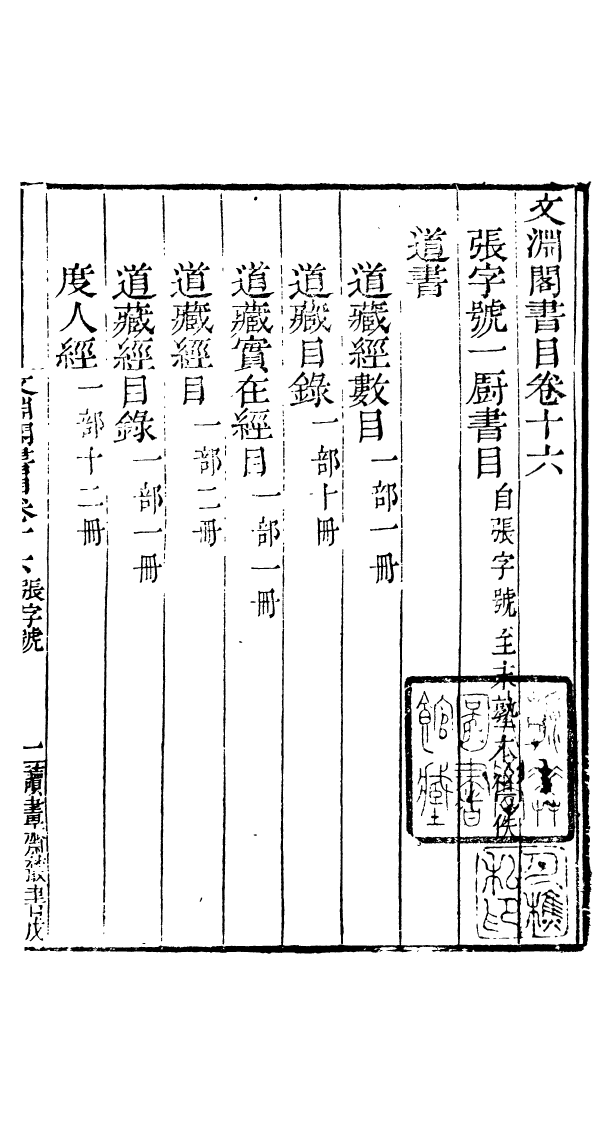 文淵閣書目卷十六
張字號一厨書目自張字號至末塾本
道書
道藏經數目一部一冊
道藏目錄一部十冊
道藏實在經目一部一冊
道藏經目一部二冊
道藏經目錄一部一冊
度人經一部十二冊
文淵閣書目卷十六 張字號 一 讀畫齋叢書戊
圖書館藏